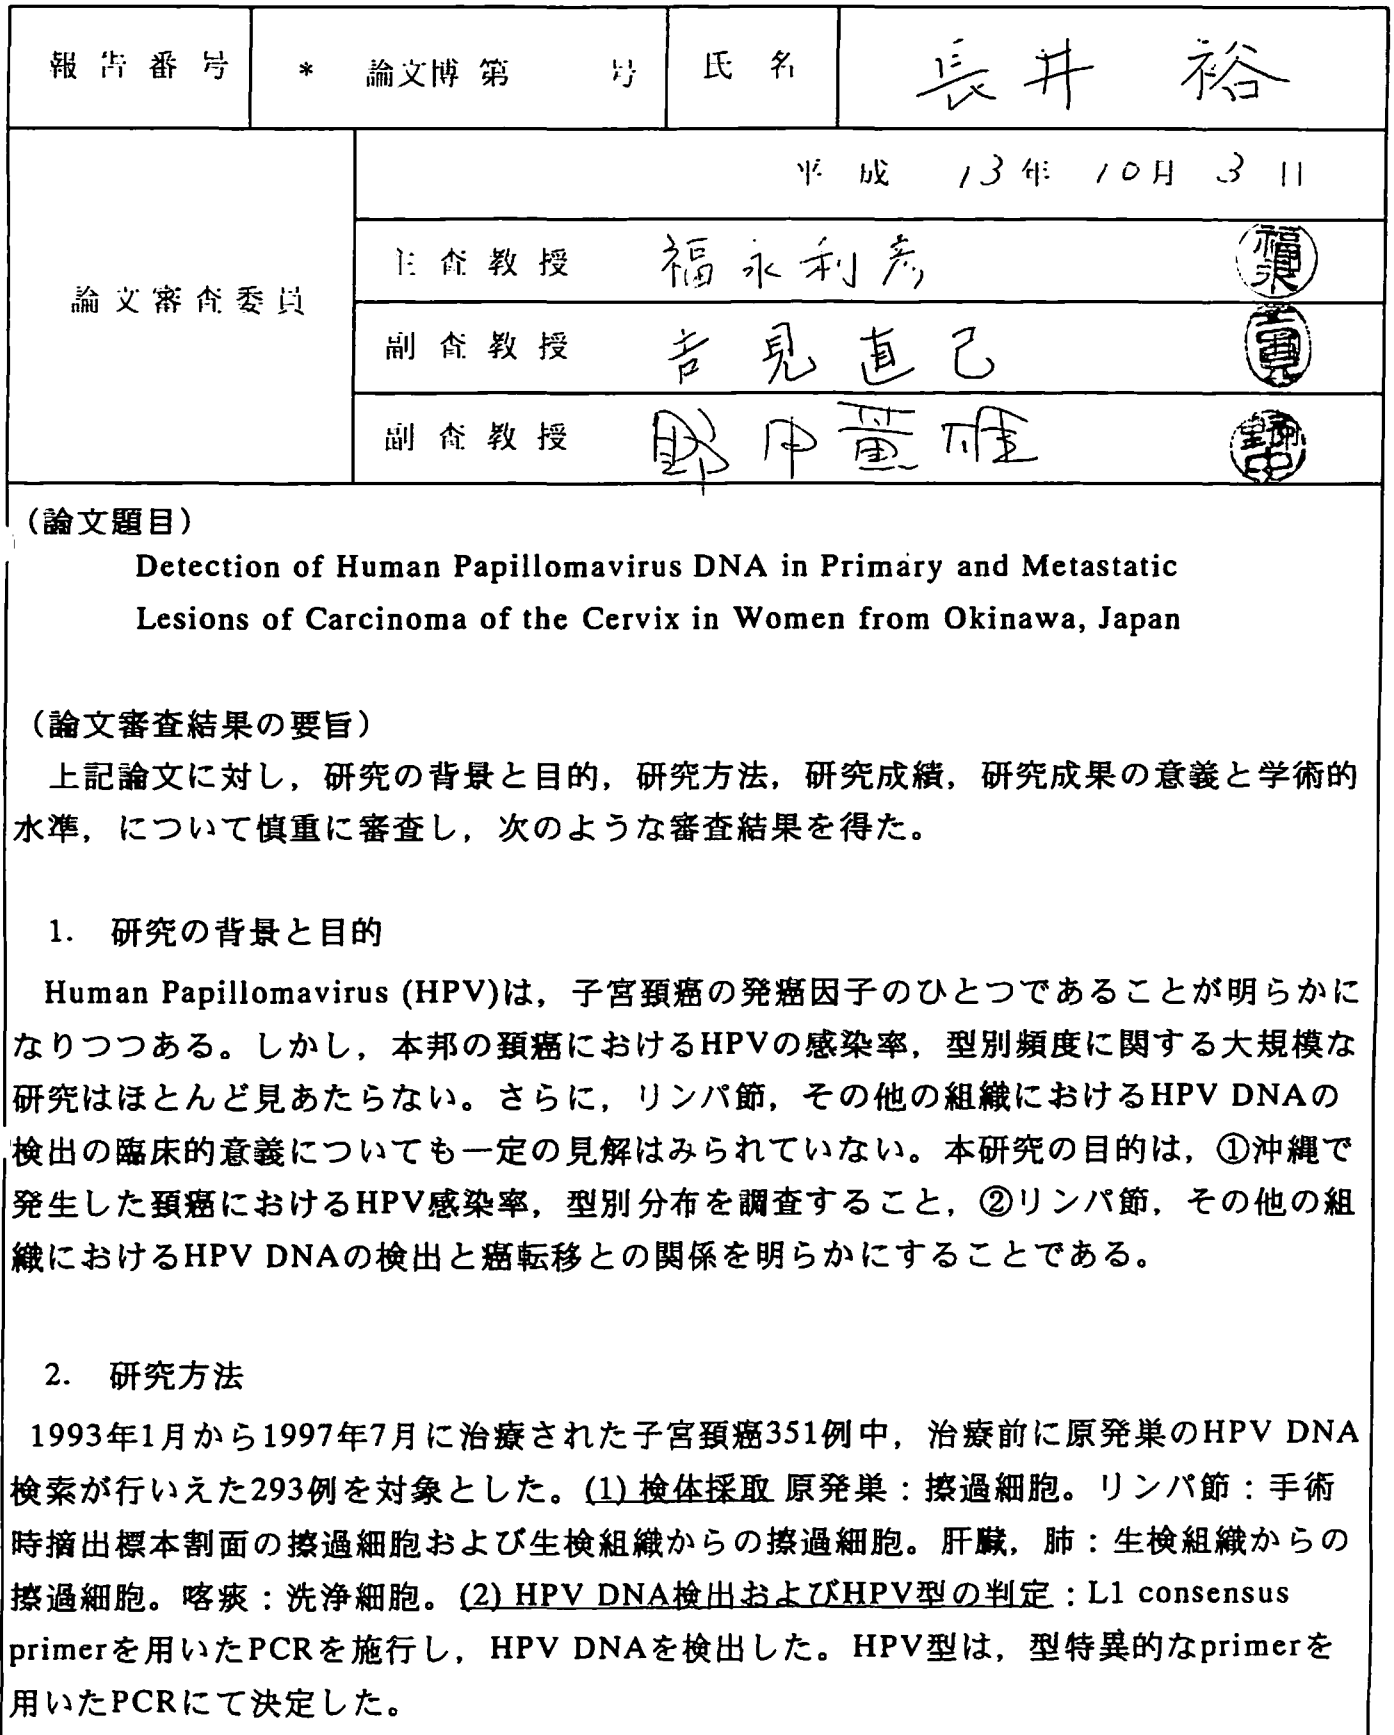 報告番号 * 論文博第 号 氏名 長井 裕
平成 13年 10月 3日
論文審査委員
主査教授 福永利彦
副査教授 吉見直己
副査教授
(論文題目)
Detection of Human Papillomavirus DNA in Primary and Metastatic
Lesions of Carcinoma of the Cervix in Women from Okinawa, Japan
(論文審査結果の要旨)
上記論文に対し,研究の背景と目的,研究方法,研究成績,研究成果の意義と学術的
水準,について慎重に審査し,次のような審査結果を得た。
1. 研究の背景と目的
Human Papillomavirus (HPV)は,子宮頚癌の発癌因子のひとつであることが明らかに
なりつつある。しかし,本邦の頚癌におけるHPVの感染率,型別頻度に関する大規模な
研究はほとんど見あたらない。さらに,リンパ節,その他の組織におけるHPV DNAの
検出の臨床的意義についても一定の見解はみられていない。本研究の目的は,①沖縄で
発生した頚癌におけるHPV感染率,型別分布を調査すること,②リンパ節,その他の組
織におけるHPV DNAの検出と癌転移との関係を明らかにすることである。
2. 研究方法
1993年1月から1997年7月に治療された子宮頚癌351例中,治療前に原発巣のHPV DNA
検索が行いえた293例を対象とした。(1) 検体採取 原発巣:擦過細胞。リンパ節:手術
時摘出標本割面の擦過細胞および生検組織からの擦過細胞。肝臓,肺:生検組織からの
擦過細胞。喀痰:洗浄細胞。(2) HPV DNA検出およびHPV型の判定:L1 consensus
primerを用いたPCRを施行し,HPV DNAを検出した。HPV型は,型特異的なprimerを
用いたPCRにて決定した。